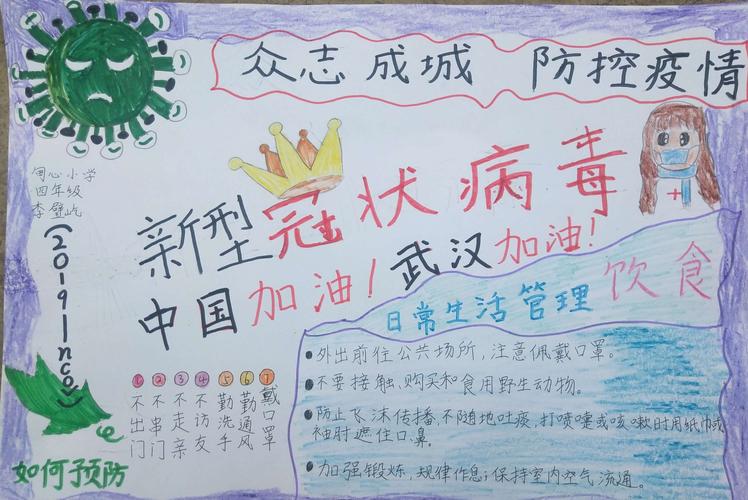 众志成城 防控疫情
同心小学
四年级
李
(2019-nCoV)
新型冠状病毒
中国加油！武汉加油！
日常生活管理 饮食
●外出前往公共场所，注意佩戴口罩。
●不要接触、购买和食用野生动物。
●防止飞沫传播，不随地吐痰，打喷嚏或咳嗽时用纸巾或
袖肘遮住口、鼻。
●加强锻炼，规律作息；保持室内空气流通。
1不出门
2不串门
3不走亲
4不访友
5勤洗手
6勤通风
7戴口罩
如何预防